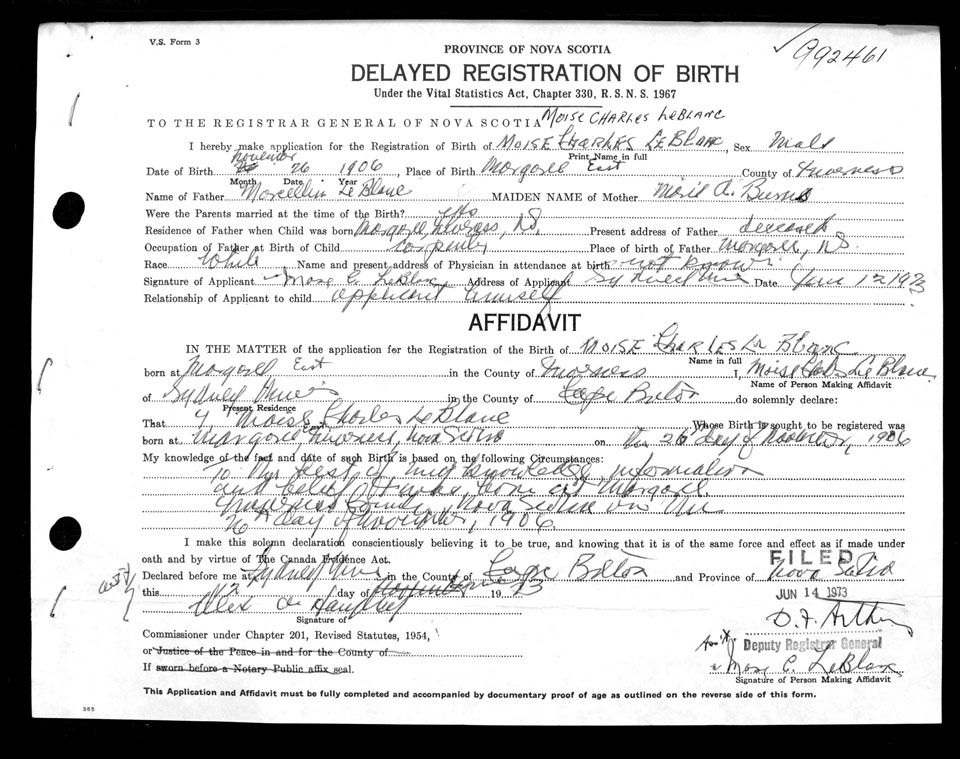 V.S. Form 3
992461
PROVINCE OF NOVA SCOTIA
DELAYED REGISTRATION OF BIRTH
Under the Vital Statistics Act, Chapter 330, R.S.N.S. 1967
MOISE CHARLES LEBLANC
TO THE REGISTRAR GENERAL OF NOVA SCOTIA
I hereby make application for the Registration of Birth of MOISE CHARLES LEBLANC, Sex Male
Print Name in full
Date of Birth November 26 1906, Place of Birth Margaree East County of Inverness
Month Date Year
Name of Father Marcellin LeBlanc MAIDEN NAME of Mother A. Burns
Were the Parents married at the time of the Birth? yes
Residence of Father when Child was born Margaree, Inverness, N.S. Present address of Father deceased
Occupation of Father at Birth of Child Carpenter Place of birth of Father Margaree, N.S.
Race White Name and present address of Physician in attendance at birth not known
Signature of Applicant Mose C. LeBlanc Address of Applicant Sydney Mines Date June 12 1973
Relationship of Applicant to child applicant himself
AFFIDAVIT
IN THE MATTER of the application for the Registration of the Birth of MOISE CHARLES Le Blanc
Name in full
born at Margaree East in the County of Inverness I, Moise Charles LeBlanc
Name of Person Making Affidavit
of Sydney Mines in the County of Cape Breton do solemnly declare:
Present Residence
That I Moise Charles LeBlanc Whose Birth is sought to be registered was
born at Margaree East Inverness, Nova Scotia on the 26 day of November, 1906
My knowledge of the fact and date of such Birth is based on the following Circumstances:
To the best of my knowledge information
and belief I was born at Margaree
Inverness County, Nova Scotia on the
26 day of November, 1906.
I make this solemn declaration conscientiously believing it to be true, and knowing that it is of the same force and effect as if made under
oath and by virtue of The Canada Evidence Act.
FILED
Declared before me at Sydney Mines in the County of Cape Breton and Province of Nova Scotia
this day of June 1973
JUN 14 1973
Signature of
Commissioner under Chapter 201, Revised Statutes, 1954,
or Justice of the Peace in and for the County of
Deputy Registrar General
If sworn before a Notary Public affix seal.
Mose C. LeBlanc
Signature of Person Making Affidavit
This Application and Affidavit must be fully completed and accompanied by documentary proof of age as outlined on the reverse side of this form.
385